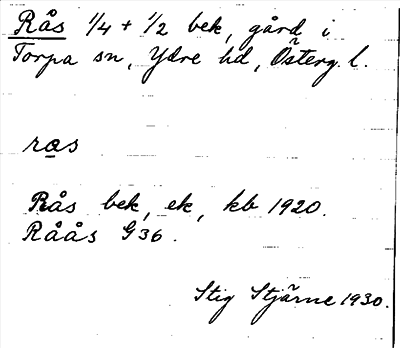 Rås 1/4 + 1/2 bek, gård i
Torpa sn, Ydre hd, Österg. l.
ros
Rås bek, ek, kb 1920.
Råås G36.
Stig Stjärne 1930.